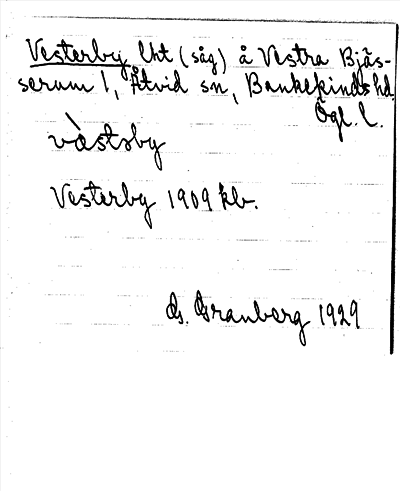 Vesterby lht (såg) å Vestra Bjäs-
serum 1, Åtvid sn, Bankekinds hd.
Ögl. l.
vàstəby
Vesterby 1909 kb.
G. Granberg 1929